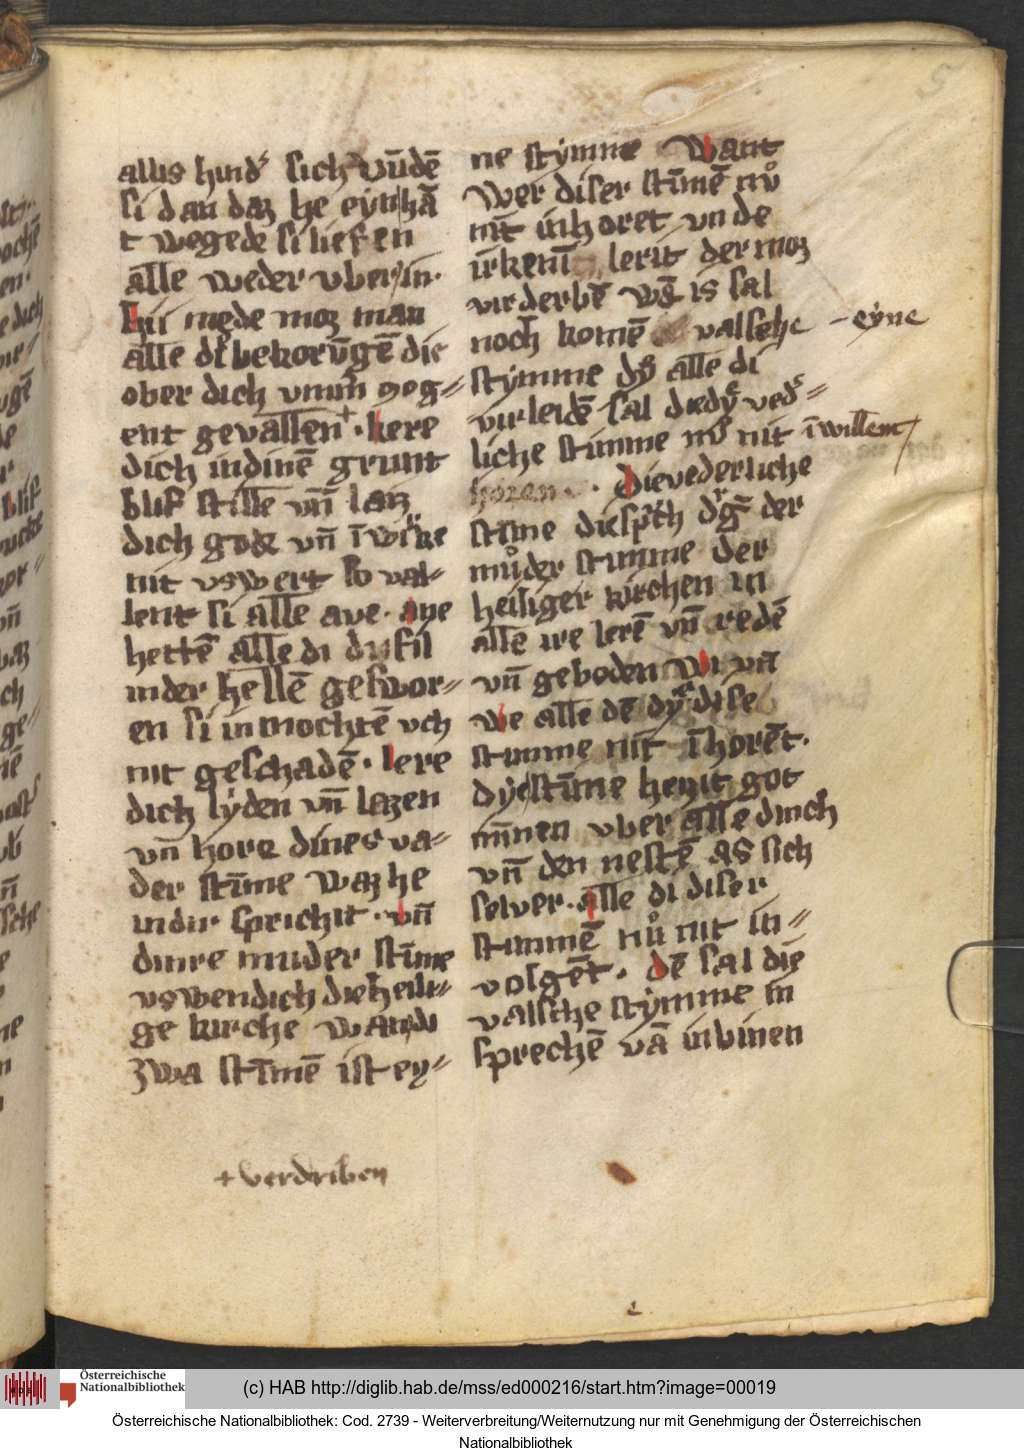 5
allis hind' sich vūdē
si dan daz he eynhā
t wegedē si liefen
alle weder vber in.
hii mede moz man
alle di bekorūgē die
ober dich vmm̄ gog=
ent gevallen + . kere
dich indinē grunt
blif stille vn̄ laz
dich gode vn̄ ī wirke
nit vswert so val=
lent si alle ave. ane
hettē alle di dufil
inder hellē geswor=
en si in mochtē vch
nit geschadē. lere
dich lyden vn̄ lazen
vn̄ hore dines va=
der stīme waz he
indir sprichit. vn̄
dinre muder stīme
vswendich die heili=
ge kirche wandi
zwa stīmē ist ey=
+ verdriben
ne stymme Want
Wer diser stīmē nů
nit inhoret vnde
irkenī lerit der moz
virderbē wā is sal
noch komē valsche – eyne
stymme dz alle di
virleidē sal die ved's=
liche stimme nů nit ī willent
horen . Die vederliche
stīme die sprich der
můder stimme der
heiliger kirchen in
alle ire lerē vn̄ redē
vn̄ geboden wi vn̄
we alle dē dy dise
stimme nit īhorēt.
dye stīme heyit got
mīnen vber alle dinch
vn̄ den nestē as sich
selver. alle di diser
stimmē nů nit in=
volgēt. dē sal die
valsche stymme in
sprechē vā inbinen
Österreichische
Nationalbibliothek
(c) HAB http://diglib.hab.de/mss/ed000216/start.htm?image=00019
Österreichische Nationalbibliothek: Cod. 2739 - Weiterverbreitung/Weiternutzung nur mit Genehmigung der Österreichischen
Nationalbibliothek